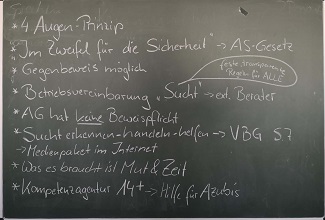 * 4 Augen-Prinzip
* "Im Zweifel für die Sicherheit" → AS-Gesetz
* Gegenbeweis möglich
feste, transparente
Regeln für ALLE
* Betriebsvereinbarung „Sucht" → ed. Berater
* AG hat keine Beweispflicht
* Sucht erkennen-handeln-helfen → VBG S7
→ Medienpaket im Internet
* Was es braucht ist Mut & Zeit
* Kompetenzagentur 14+ → Hilfe für Azubis